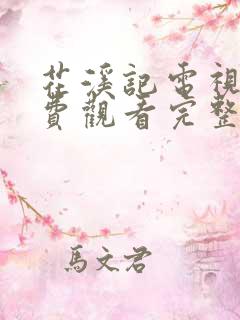 茫溪記電視
費觀看完整
馬文君